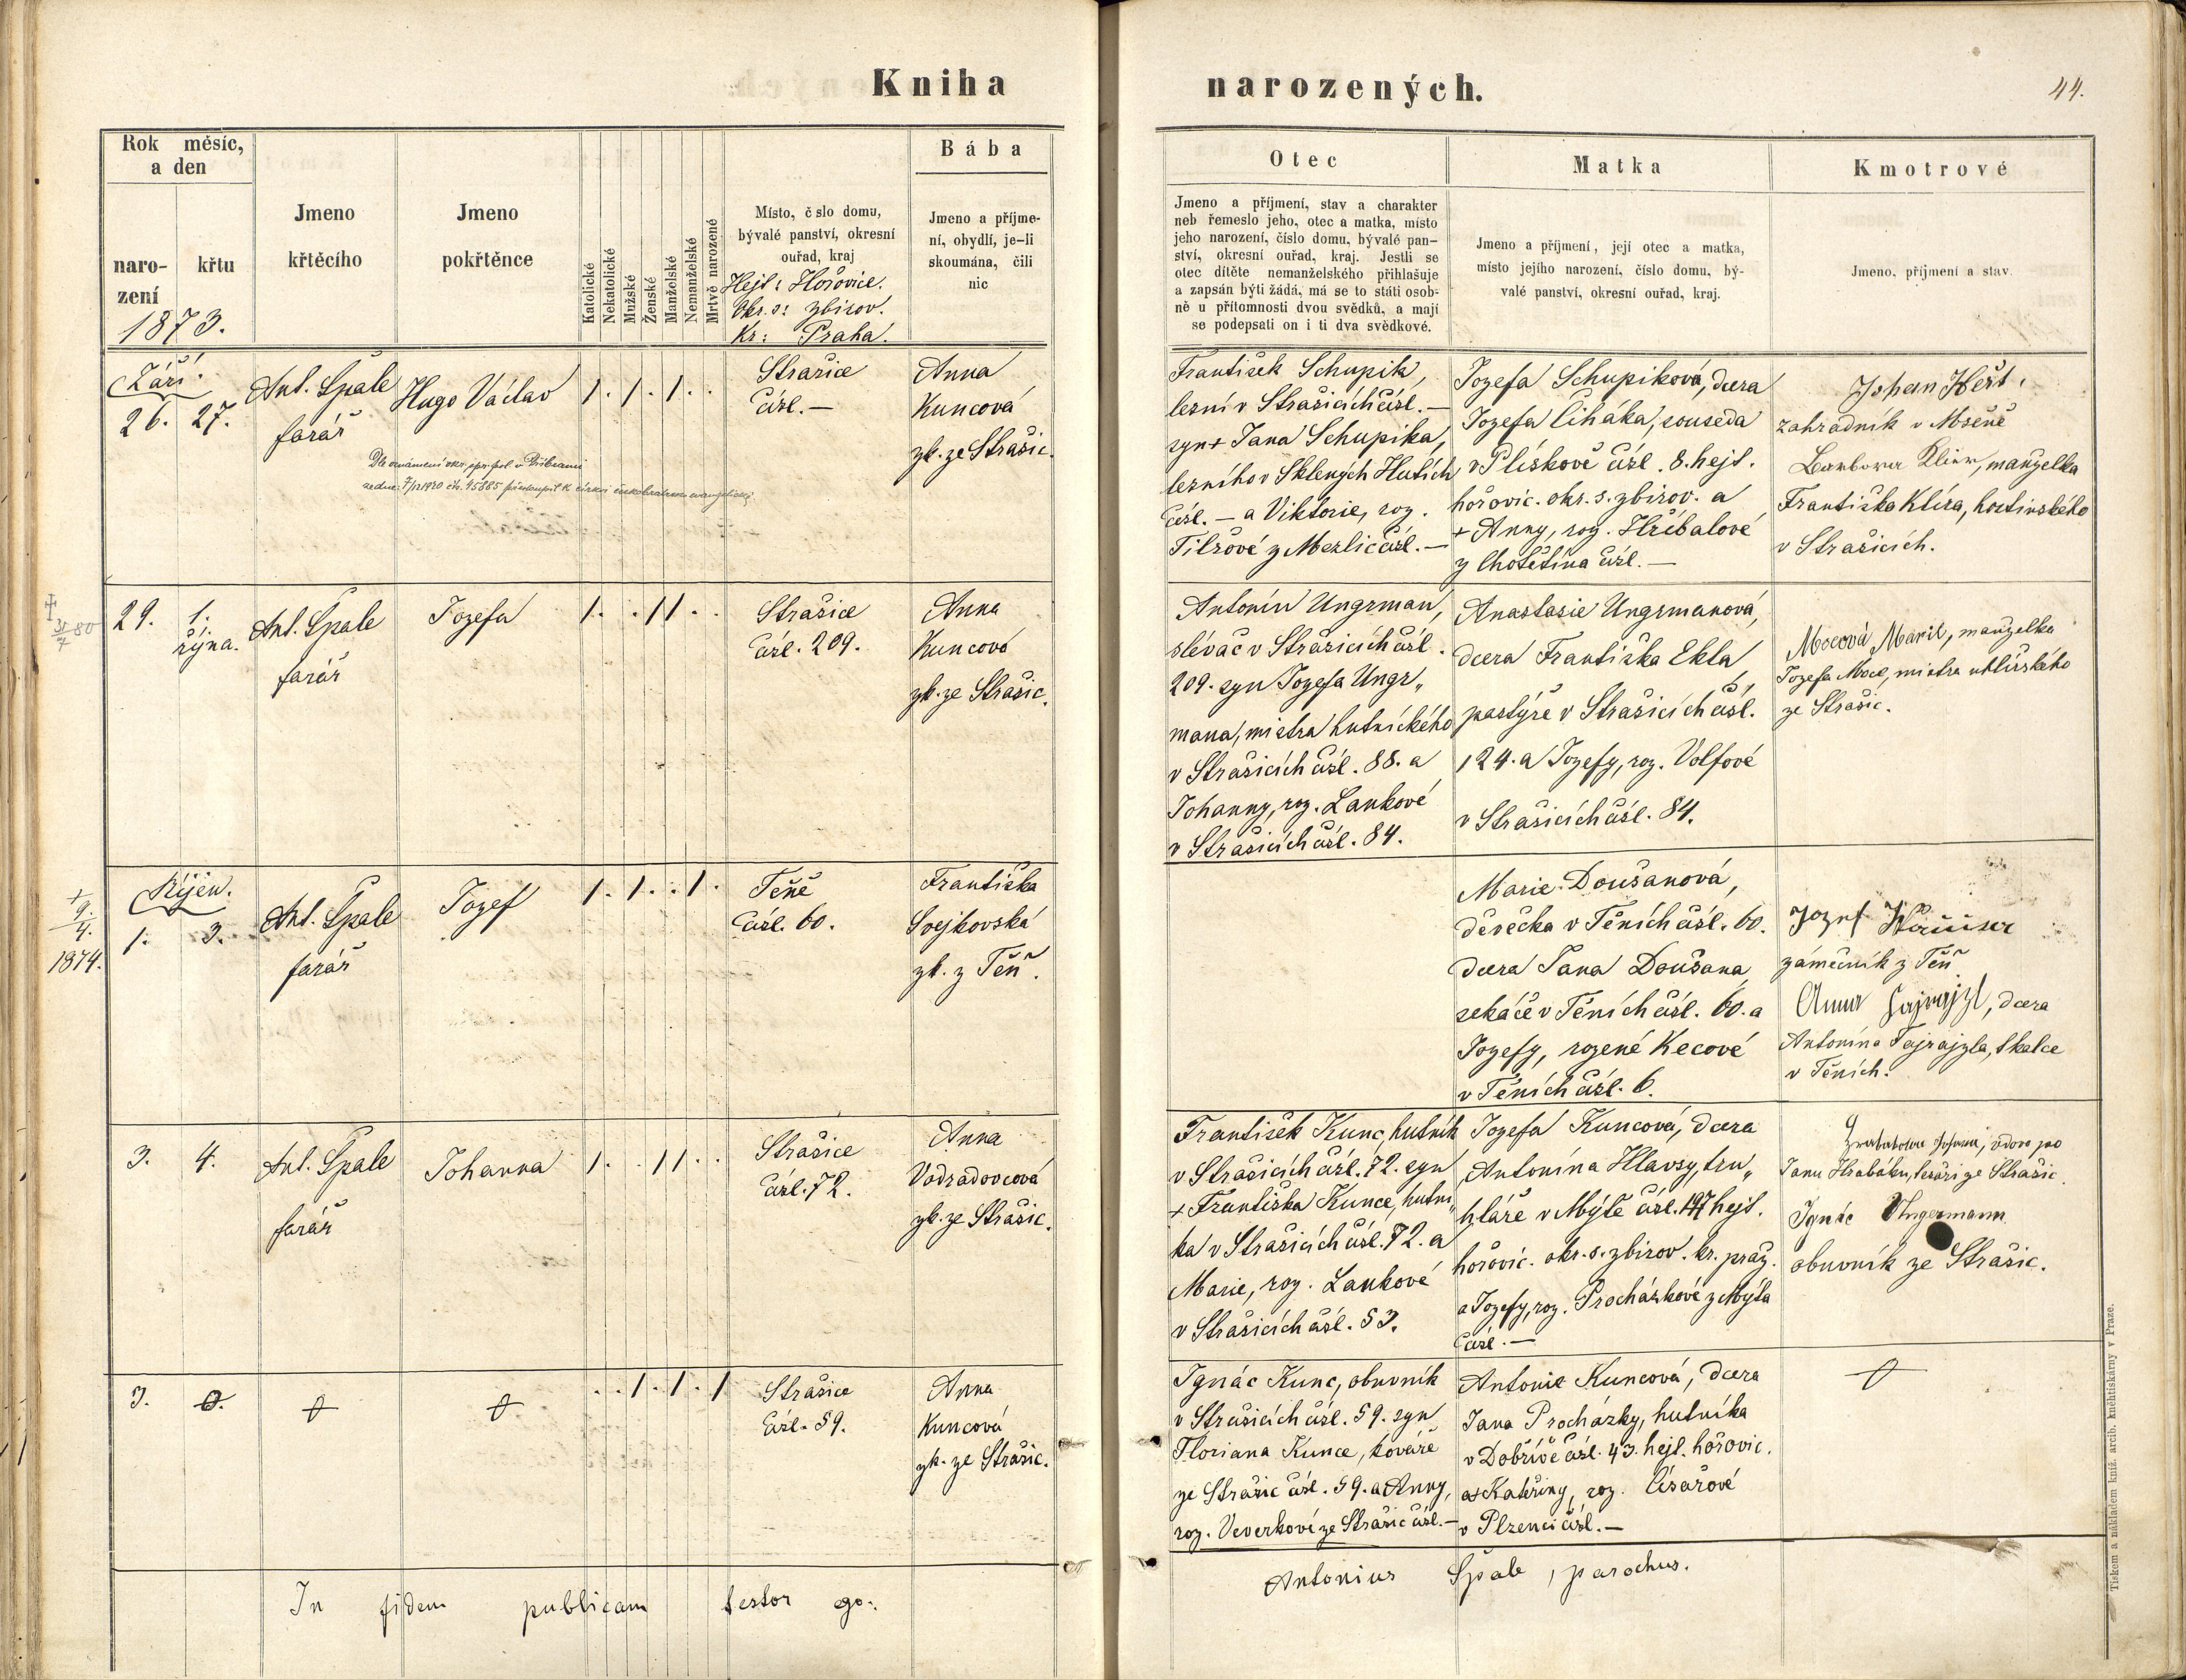 Kniha narozených.
44.
Rok měsíc,
a den
naro-
zení
křtu
1873.
Jmeno
křtěcího
Jmeno
pokřtěnce
Katolické
Nekatolické
Mužské
Ženské
Manželské
Nemanželské
Mrtvě narozené
Místo, č slo domu,
bývalé panství, okresní
ouřad, kraj
Hejt: Hořovice.
Okr. s: Zbirov.
Kr: Praha.
Bába
Jmeno a příjme-
ní, obydlí, je-li
skoumána, čili
nic
Otec
Jmeno a příjmení, stav a charakter
neb řemeslo jeho, otec a matka, místo
jeho narození, číslo domu, bývalé pan-
ství, okresní ouřad, kraj. Jestli se
otec dítěte nemanželského přihlašuje
a zapsán býti žádá, má se to státi osob-
ně u přítomnosti dvou svědků, a mají
se podepsati on i ti dva svědkové.
Matka
Jmeno a příjmení, její otec a matka,
místo jejího narození, číslo domu, bý-
valé panství, okresní ouřad, kraj.
Kmotrové
Jmeno, příjmení a stav.
Září.
26. 27.
Ant. Špale
farář
Hugo Václav
1. 1. 1. .
Strašice
čísl. —
Anna
Kuncová
zk. ze Strašic.
Dle oznámení okr. spr. pol. v Příbrami
ze dne 7/12 1920 čís. 45885 přestoupil k církvi českobratrské evangelické
František Schupik,
lesní v Strašicích čísl. —
syn + Jana Schupika,
lesního v Sklených Hutích
čísl. — a Viktorie, roz.
Tilšové z Merlic čísl. —
Jozefa Schupiková, dcera
Jozefa Čiháka, souseda
v Plískově čísl. 8. hejt.
hořovic. okr. s. zbirov. a
+ Anny, roz. Hříbalové
z Chotětína čísl. —
zahradník v Mseně
Barbora Klier, manželka
Františka Klíra, hostinského
v Strašicích.
31/7 80
29. 1.
října.
Ant. Špale
farář
Jozefa
1. . 1 1 . .
Strašice
čísl. 209.
Anna
Kuncová
zk. ze Strašic.
Antonín Ungrman,
slévač v Strašicích čísl.
209. syn Jozefa Ungr„
mana, mistra hutnického
v Strašicích čísl. 88. a
Johanny, roz. Lankové
v Strašicích čísl. 84.
Anastasie Ungrmanová,
dcera Františka Ekla
pastýře v Strašicích čísl.
124. a Jozefy, roz. Volfové
v Strašicích čísl. 84.
Mocová Marie, manželka
Jozefa Moce, mistra uhlířského
ze Strašic.
+
9./4.
1874.
Říjen.
1. 3.
Ant. Špale
farář
Jozef
1. 1. . 1.
Těně
čísl. 60.
Františka
Švejkovská
zk. z Těň.
Marie Doušanová,
děvečka v Těních čísl. 60.
dcera Jana Doušana
sekáče v Těních čísl. 60. a
Jozefy, rozené Kecové
v Těních čísl. 6.
Jozef
zámečník z Těň
Anna Fajrajzl, dcera
Antonína Fajrajzla, tkalce
v Těních.
3. 4.
Ant. Špale
farář
Johanna
1. . 1 1 . .
Strašice
čísl. 72.
Anna
Vodradovcová
zk. ze Strašic.
František Kunc, hutník
v Strašicích čísl. 72. syn
+ Františka Kunce, hutní„
ka v Strašicích čísl. 72. a
Marie, roz. Lankové
v Strašicích čísl. 53.
Jozefa Kuncová, dcera
Antonína Hlavsy, tru„
hláře v Mýtě čísl. 197 hejt.
hořovic. okr. s. zbirov. kr. praž.
a Jozefy, roz. Procházkové z Mýta
čísl. —
vdova po
Janu Hrabáku, tesaři ze Strašic.
Ignác Ungermann
obuvník ze Strašic.
3. 0.
. . 1. 1. 1
Strašice
čísl. 59.
Anna
Kuncová
zk. ze Strašic.
Ignác Kunc, obuvník
v Strašicích čísl. 59. syn
Floriana Kunce, kováře
ze Strašic čísl. 59. a Anny,
roz. Veverkové ze Strašic čísl. —
Antonie Kuncová, dcera
Jana Procházky, hutníka
v Dobřívě čísl. 43. hejt. hořovic.
a + Kateřiny, roz. Císařové
v Plzenci čísl. —
In fidem publicam testor ego: Antonius Špale, parochus.
Tiskem a nákladem kníž. arcib. kněhtiskárny v Praze.